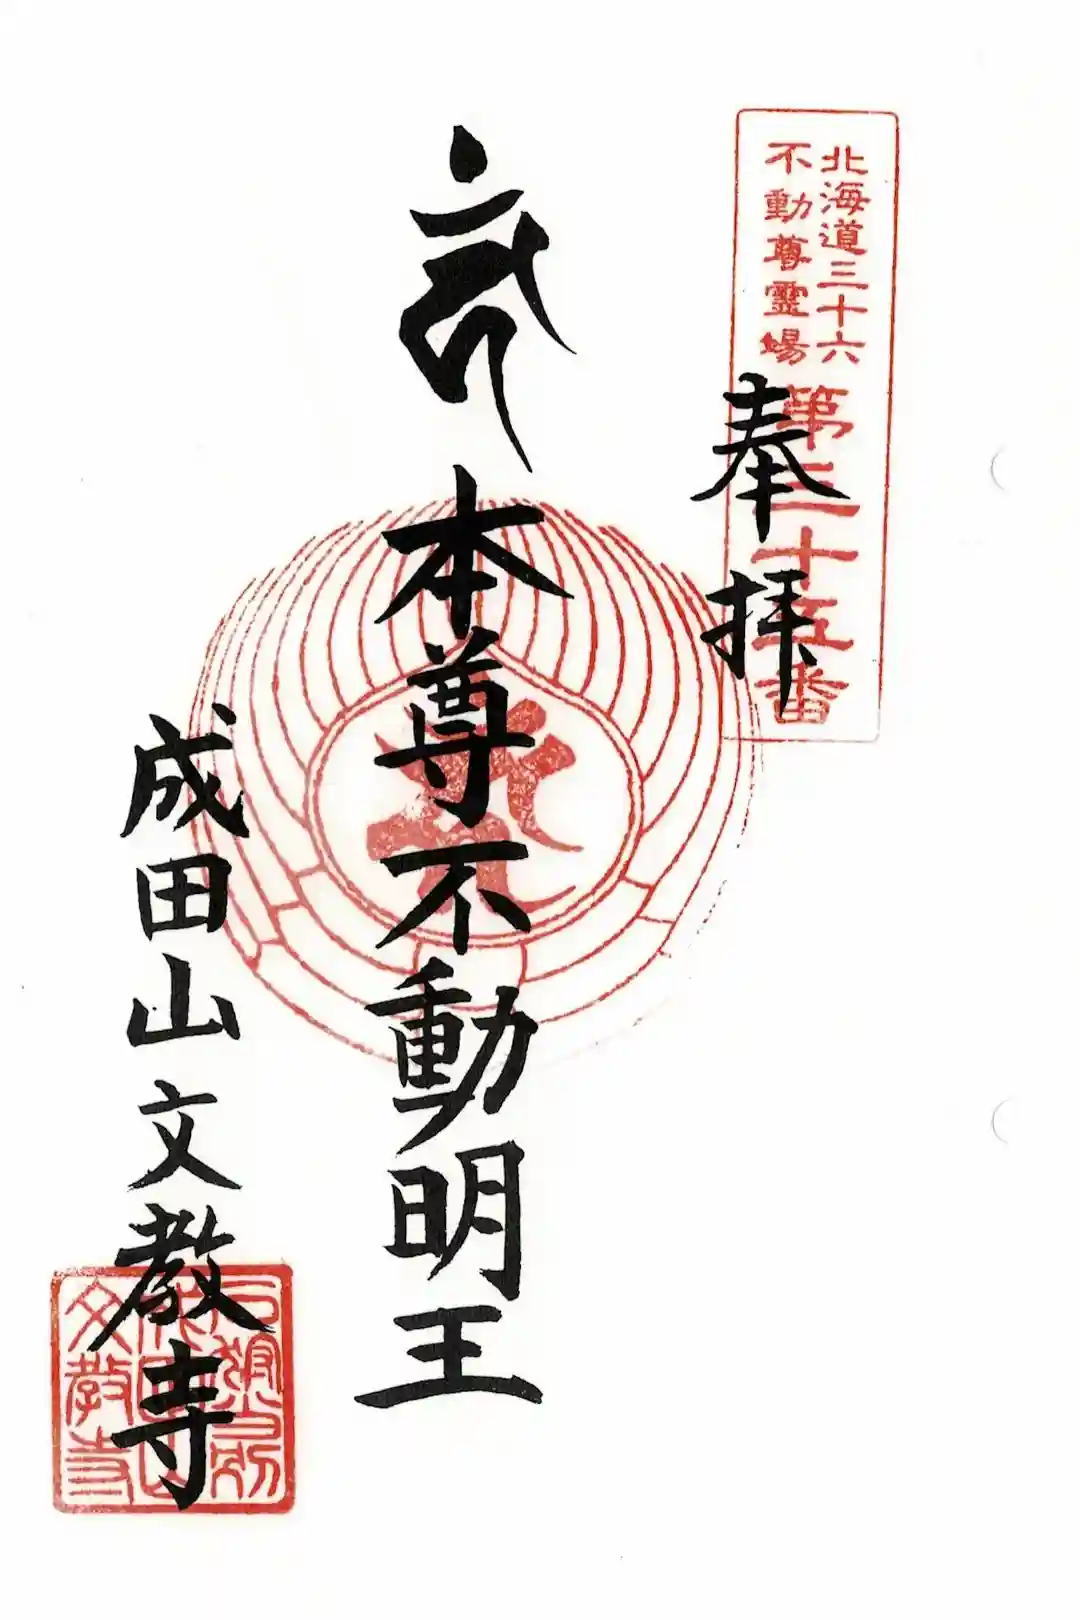 北海道三十六
不動尊霊場
第三十五番
奉拝
本尊不動明王
成田山文教寺
文教寺